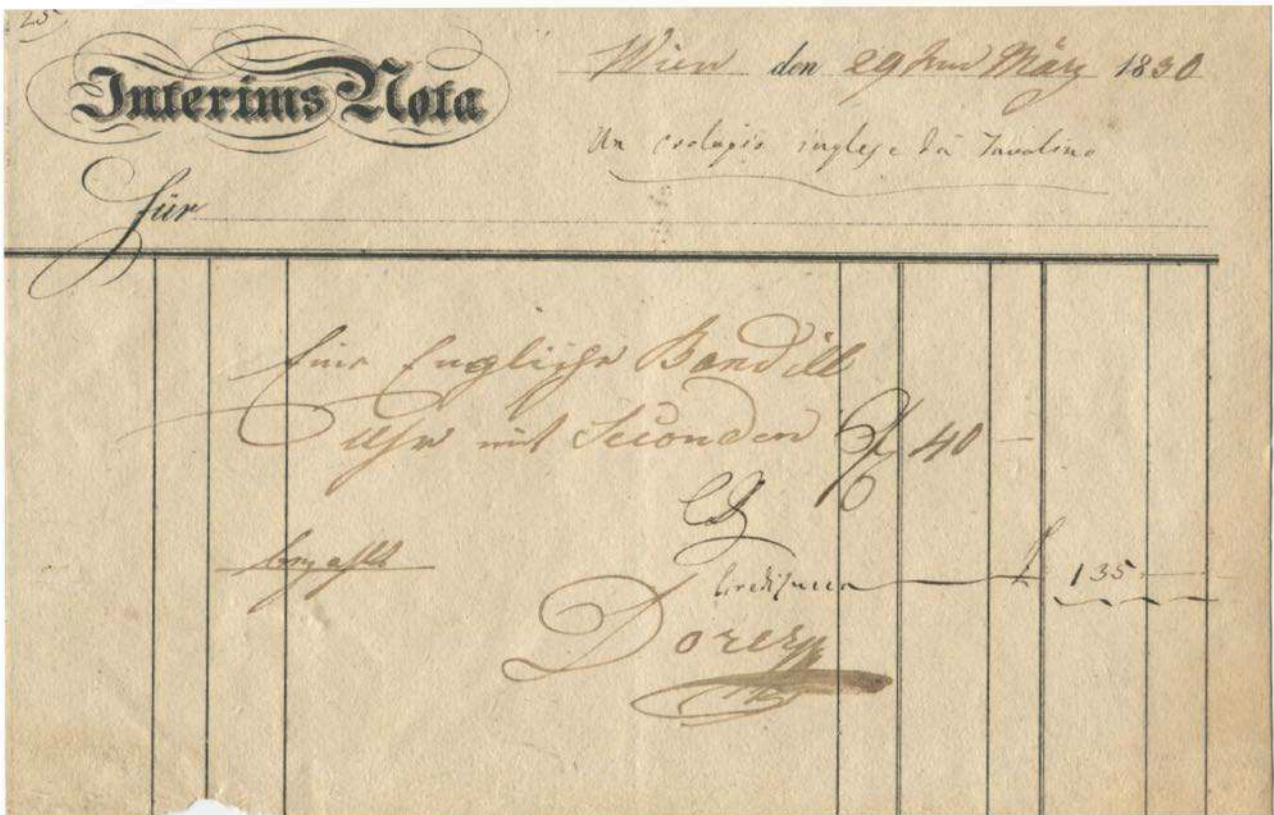 25
Interims Nota
Wien den 29ten März 1830
Un orologio inglese da Tavolino
für
Eine Englische Bandill
Uhr mit Seconden f 40 —
bezahlt
135
Dorer